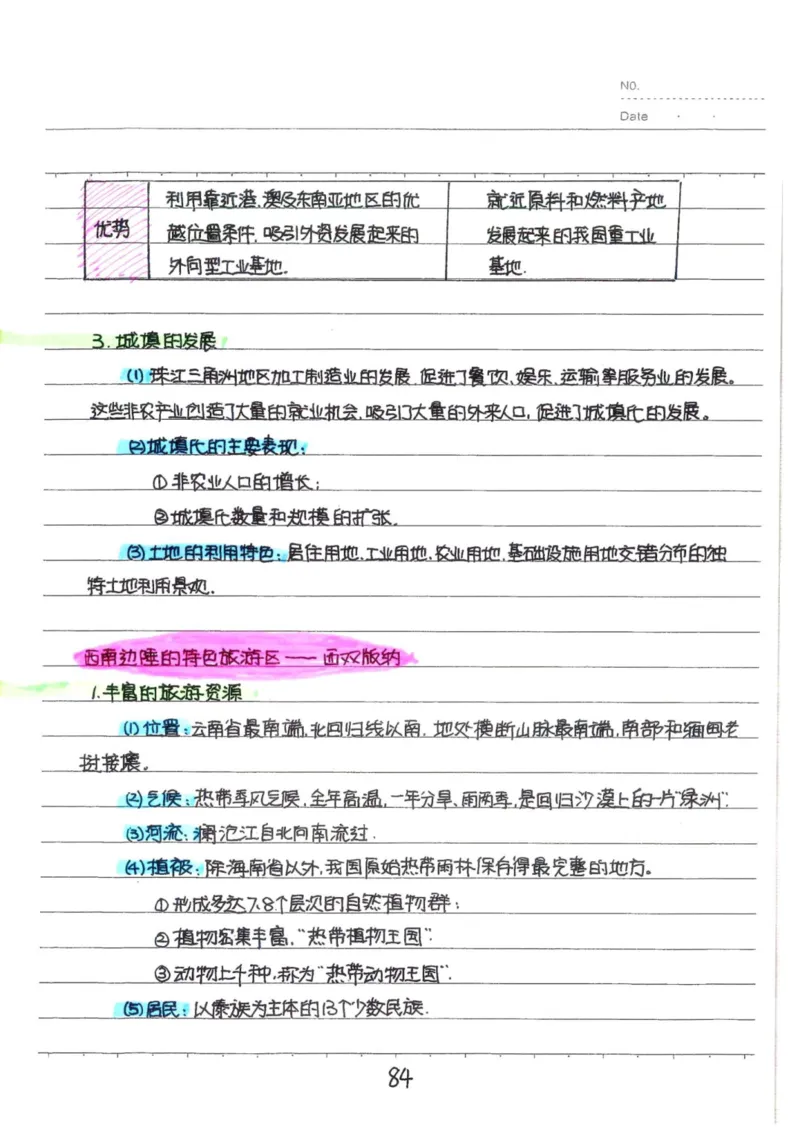 NO.
Date
优势
利用靠近港、澳及东南亚地区的优
越位置条件,吸引外资发展起来的
外向型工业基地.
就近原料和燃料产地
发展起来的我国重工业
基地.
3. 城填的发展
(1) 珠江三角洲地区加工制造业的发展,促进了餐饮、娱乐、运输等服务业的发展。
这些非农产业创造了大量的就业机会,吸引了大量的外来人口,促进了城填化的发展。
(2)城填化的主要表现:
①非农业人口的增长;
②城填化数量和规模的扩张.
(3)土地的利用特色:居住用地、工业用地、农业用地、基础设施用地交错分布的独
特土地利用景观.
西南边陲的特色旅游区——西双版纳
1.丰富的旅游资源
(1)位置:云南省最南端,北回归线以南,地处横断山脉最南端,南部和缅甸老
挝接壤。
(2)气候:热带季风气候,全年高温,一年分旱、雨两季,是回归沙漠上的一片"绿洲".
(3)河流:澜沧江自北向南流过.
(4)植被:除海南省以外,我国原始热带雨林保存得最完整的地方。
①形成多达7.8个层次的自然植物群;
②植物密集丰富,"热带植物王国".
③动物上千种,称为"热带动物王国".
(5)居民:以傣族为主体的13个少数民族.
84